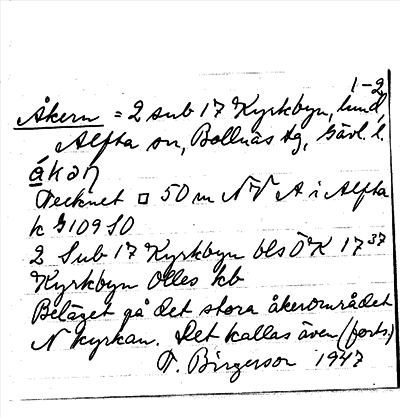 1-2
Åkern = 2 sub 17 Kyrkbyn, lund,
Alfta sn, Bollnäs tg, Gävl. l.
ákəη
Tecknet □ 50 m NV A i Alfta
k G 109 SO
2 Sub 17 Kyrkbyn bls ÖK 17 37
Kyrkbyn Olles kb
Beläget på det stora åkerområdet
N kyrkan. Det kallas även (forts.)
T. Birgerson 1947